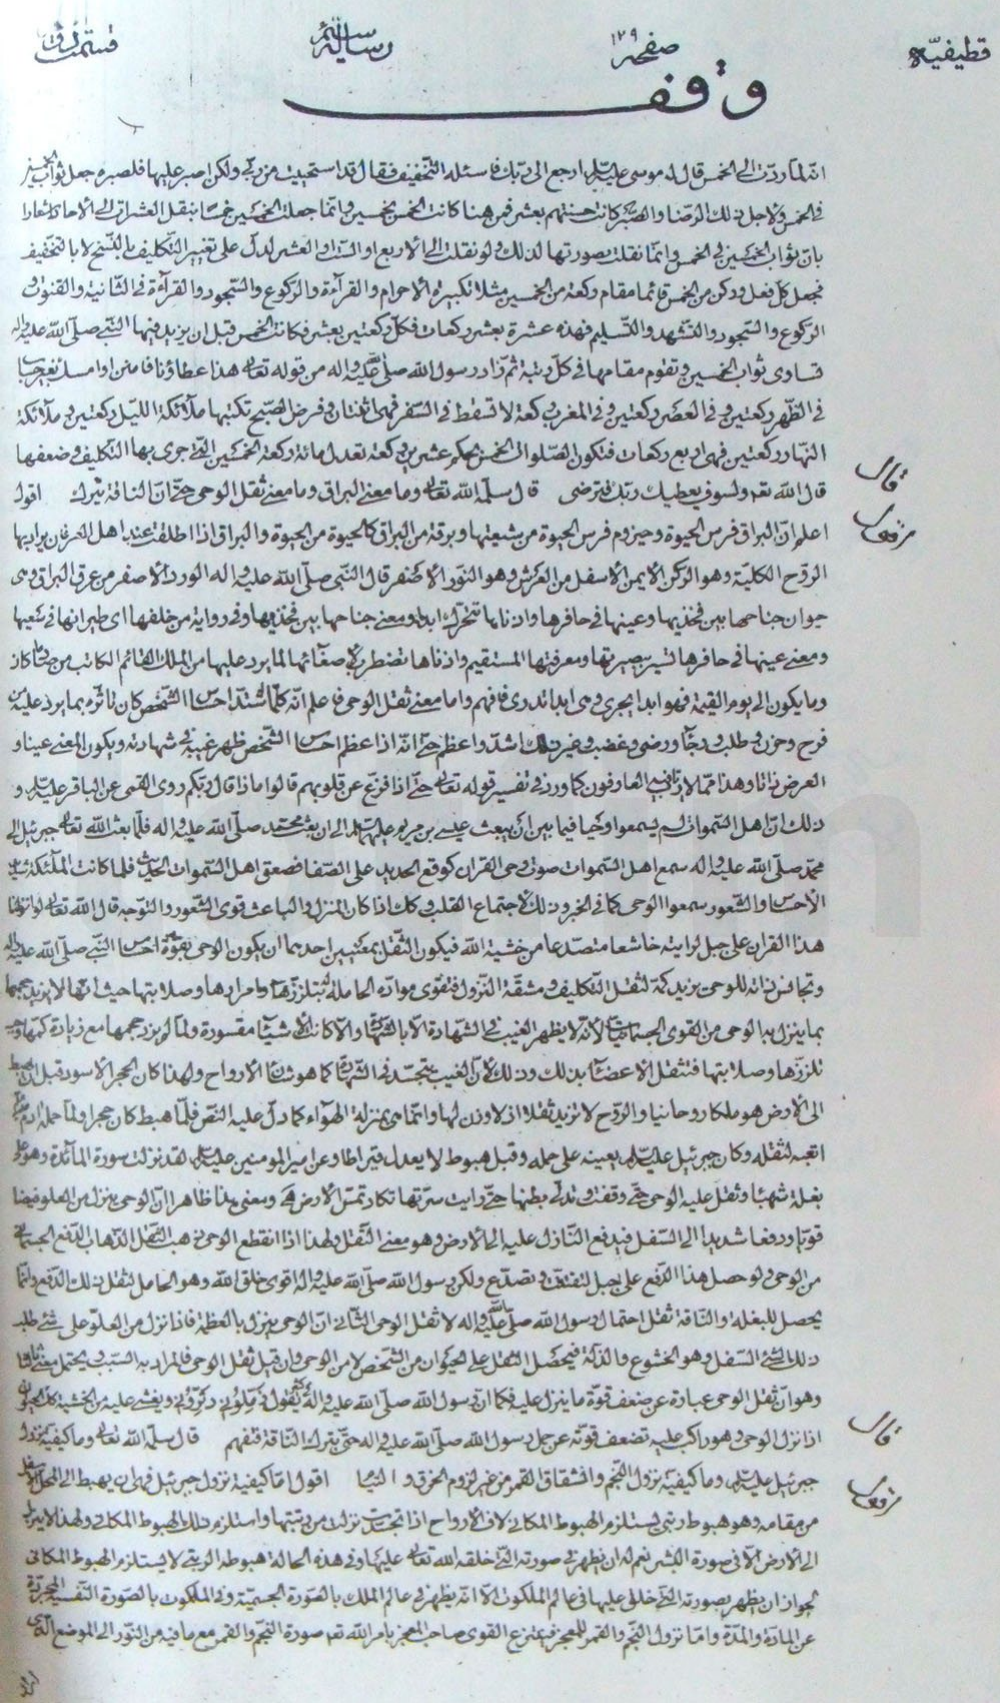 قطيفيّة صفحه ١٢٩ رسالة
وقف
انّه لمّا ردّت الى الخمس قال له موسى عليه السلم ارجع الى ربّك فاسئله التخفيف فقال قد استحييت من ربّى ولكن اصبر عليها فلصبره جعل ثواب الخمسين
فى الخمس ولاجل ذلك الرضا والصّبر كانت حسنتهم بعشر فمن هنا كانت الخمس بخمسين وانّما جعلت الخمسين خمسا بنقل العشرات الى الاحاد اشعارا
بان ثواب الخمسين فى الخمس وانّما نقلت بصورتها لذلك ولو نقلت الى الاربع او الستّ او العشر لدلّ على تغيير التّكليف بالنّسخ لا بالتخفيف
فجعل كلّ فعل وركن من الخمس قائما مقام ركعة من الخمسين مثلا تكبيرة الاحرام والقرآءة والركوع والسّجود والقرآءة فى الثّانية والقنوت و
الركوع والسّجود والتّشهد والتّسليم فهذه عشرة بعشر ركعات فكلّ ركعتين بعشر فكانت الخمس قبل ان يزيد فيها النّبى صلّى الله عليه واله
تساوى ثواب الخمسين وتقوم مقامها فى كلّ رتبة ثم زاد رسول الله صلّى الله عليه واله من قوله تعالى هذا عطاؤنا فامنن او امسك بغير حساب
فى الظّهر ركعتين وفى العصر ركعتين وفى المغرب ركعة لا تسقط فى السّفر فهى اثنتان وفرض الصّبح تكتبها ملآئكة اللّيل ركعتين وملآئكة
النّهار ركعتين فهى اربع ركعات فتكون الصّلوات الخمس بحكم عشرين ركعة تعدل مائة ركعة الخمسين التى جرى بها التكليف وضعفها
قال الله تعالى ولسوف يعطيك ربّك فترضى قال سلّمه الله تعالى وما معنى البراق وما معنى ثقل الوحى حتّى انّ الناقة تبرك اقول
قال
اعلم انّ البراق فرس الحيوة وحيزوم فرس الحيوة من شيعتها وبرقة من البراق كالحيوة من الحيوة والبراق اذا اطلقت عند اهل العرفان يراد بها
الرّوح الكليّة وهو الركن الايمن الاسفل من العرش وهو النّور الاصفر قال النّبى صلّى الله عليه واله الورد الاصفر من عرق البراق وهى
حيوان جناحها بين فخذيها وعينها فى حافرها واذناها تتحرّك ابدا ومعنى جناحها بين فخذيها وفى رواية من خلفها اى طيرانها فى سعيها
ومعنى عينها فى حافرها تسير ببصيرتها ومعرفتها المستقيم واذناها تضطرب لاصغائها لما يرد عليها من الملك القائم الكاتب من ما كان
وما يكون الى يوم القيمة فهو ابدا يجرى وهى ابدا تدرى فافهم واما معنى ثقل الوحى فاعلم انّه كلّما اشتدّ احساس الشّخص كان تاثّره بما يرد عليه من
فرح وحزن وطلب ورجآء ورضى وغضب وغير ذلك اشدّ واعظم حتّى انّه اذا عظم احساس الشّخص ظهر غيبه فى شهادته ويكون المعنى عينا و
العرض ذاتا وهذا ممّا لا يرتاب فيه العارفون كما ورد فى تفسير قوله تعالى حتّى اذا فزّع عن قلوبهم قالوا ماذا قال ربّكم روى القمى عن الباقر عليه السلم و
ذلك انّ اهل السّموات لم يسمعوا وحيا فيما بين ان بعث عيسى بن مريم عليهما السلم الى ان بعث محمّد صلّى الله عليه واله فلمّا بعث الله تعالى جبرئيل الى
محمّد صلّى الله عليه واله سمع اهل السّموات صوت وحى القران كوقع الحديد على الصّفا فصعق اهل السّموات الحديث فلما كانت الملآئكة شديد
الاحساس والشّعور سمعوا الوحى كما فى الخبر وذلك لاجتماع القلب وكك اذا كان المنزل قوى الشّعور والتوجّه قال الله تعالى لو انزلنا
هذا القران على جبل لرايته خاشعا متصدّعا من خشية الله فيكون الثّقل بمعنيين احدهما ان يكون الوحى بقوّة احساس النّبى صلّى الله عليه واله
وتجانس ذاته للوحى يزيد كمّه لثقل التّكليف ومشقّة النّزول فتقوى موادّه الحاملة وصلابتها حيث انّها لا يزيد حجمها
بما ينزل به الوحى من القوى الجسمانيات لانّه لا يظهر الغيب فى الشّهادة الّا بالشهادة والّا كانت الاشيآء مقسورة ولمّا لم يزد حجمها مع زيادة كمّها
تلزّزها وصلابتها فتثقل الاعضآء بذلك وذلك لانّ الغيب يتجسّد فى الشّهادة كما هو شان الارواح ولهذا كان الحجر الاسود قبل ان يهبط
الى الارض هو ملكا روحانيا والرّوح لا تزيد ثقلا اذ لا وزن لها وانّما هى بمنزلة الهوآء كما دلّ عليه النصّ فلمّا هبط كان حجرا ولمّا حمله ادم
اتعبه لثقله وكان جبرئيل عليه السلم يعينه على حمله وقبل هبوط لا يعدل قيراطا وعن امير المؤمنين عليه السلم لقد نزلت سورة المآئدة وهو على
بغلة شهبآء وثقل عليه الوحى حتّى وقفت وتدلّى بطنها حتّى رايت سرّتها تكاد تمسّ الارض ومعنى هذا ظاهرا انّ الوحى ينزل من العلو فيضا
قويّا ودفعا شديدا الى السّفل فيدفع النّازل عليه الى الارض وهو معنى الثّقل ولهذا اذا انقطع الوحى ذهب الثّقل لذهاب الدّفع
من الوحى ولو حصل هذا الدّفع على جبل لتفتّت وتصدّع ولكن رسول الله صلّى الله عليه واله اقوى خلق الله وهو الحامل لثقل ذلك الدّفع وانّما
يحصل للبغلة والنّاقة ثقل احتمال رسول الله صلّى الله عليه واله لا ثقل الوحى الثّانى انّ الوحى ينزل بالعظمة فاذا نزل من العلوّ على شئ طلب
ذلك الشئ السّفل وهو الخشوع والذلّة فيحصل الثّقل على الحيوان من الشّخص لا من الوحى وان قيل ثقل الوحى فالمراد به السّبب ويحتمل معنى ثالثا
وهو انّ ثقل الوحى عبارة عن ضعف قوّة ما ينزل عليه فكما ان رسول الله صلّى الله عليه واله يقول زمّلونى دثّرونى ويغشى عليه من الخشية كك الحيوان
اذا نزل الوحى وهو راكب عليه تضعف قوّته عن حمل رسول الله صلّى الله عليه واله حتّى تبرك النّاقة فتفهم قال سلّمه الله تعالى وما كيفيّة نزول
قال
جبرئيل عليه السلم وما كيفيّة نزول النّجم وانشقاق القمر من غير لزوم الخرق والالتيام اقول امّا كيفية نزول جبرئيل فهى ان يهبط الى المحلّ الاسفل
من مقامه وهو هبوط رتبى يستلزم الهبوط المكانى لانّ الارواح اذا تجسّدت نزلت من رتبتها واستلزم ذلك الهبوط المكانى ولهذا لا ينزل
الى الارض الّا فى صورة البشر نعم له ان يظهر فى صورته الّتى خلقه الله تعالى عليها وفى هذه الحالة هبوطه الرّتبى لا يستلزم الهبوط المكانى
لجواز ان يظهر بصورته الّتى خلق عليها فى عالم الملكوت الّا انّه يظهر فى عالم الملك بالصّورة الجسميّة وفى الملكوت بالصّورة النّفسيّة المجرّدة
عن المادّة والمدّة وامّا نزول النّجم والقمر للمعجز فينتزع القوى صاحب المعجز بامر الله تعالى صورة النّجم والقمر مع ما فيه من النّور الى الموضع الّذى